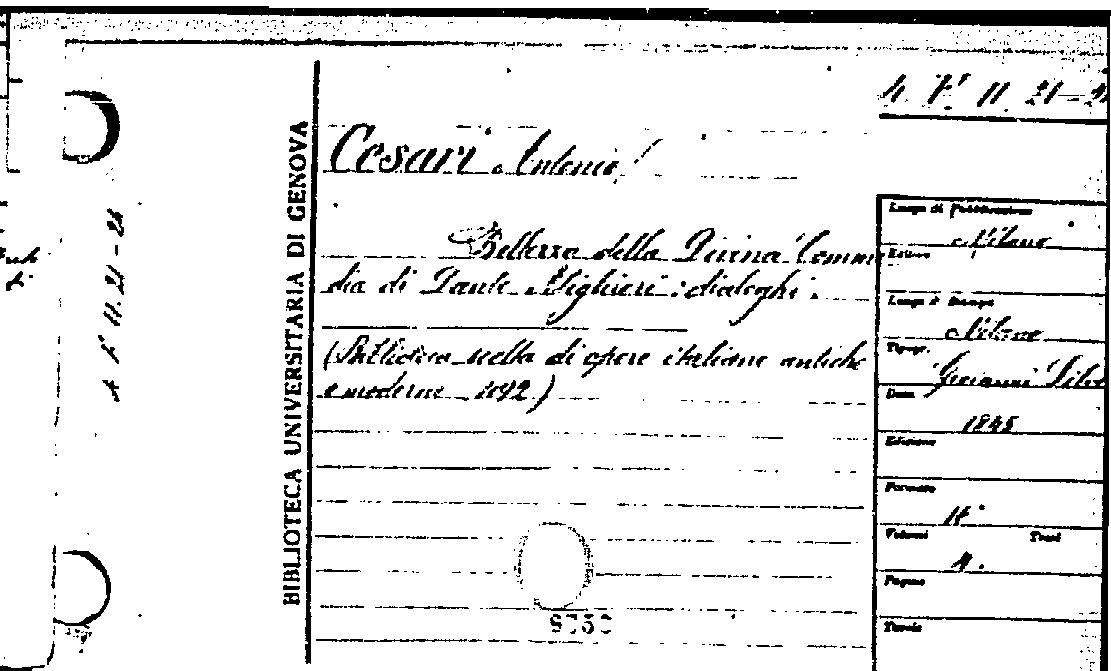 BIBLIOTECA UNIVERSITARIA DI GENOVA
Cesari Antonio
Bellezza della Divina Comme
dia di Dante Alighieri: dialoghi.
(Biblioteca scelta di opere italiane antiche
e moderne
Luogo di Pubblicazione
Milano
Editore
Luogo di Stampa
Milano
Tipogr.
Giovanni Silve
Data
1845
Edizione
Formato
Volumi Tomi
4.
Pagine
Tavole